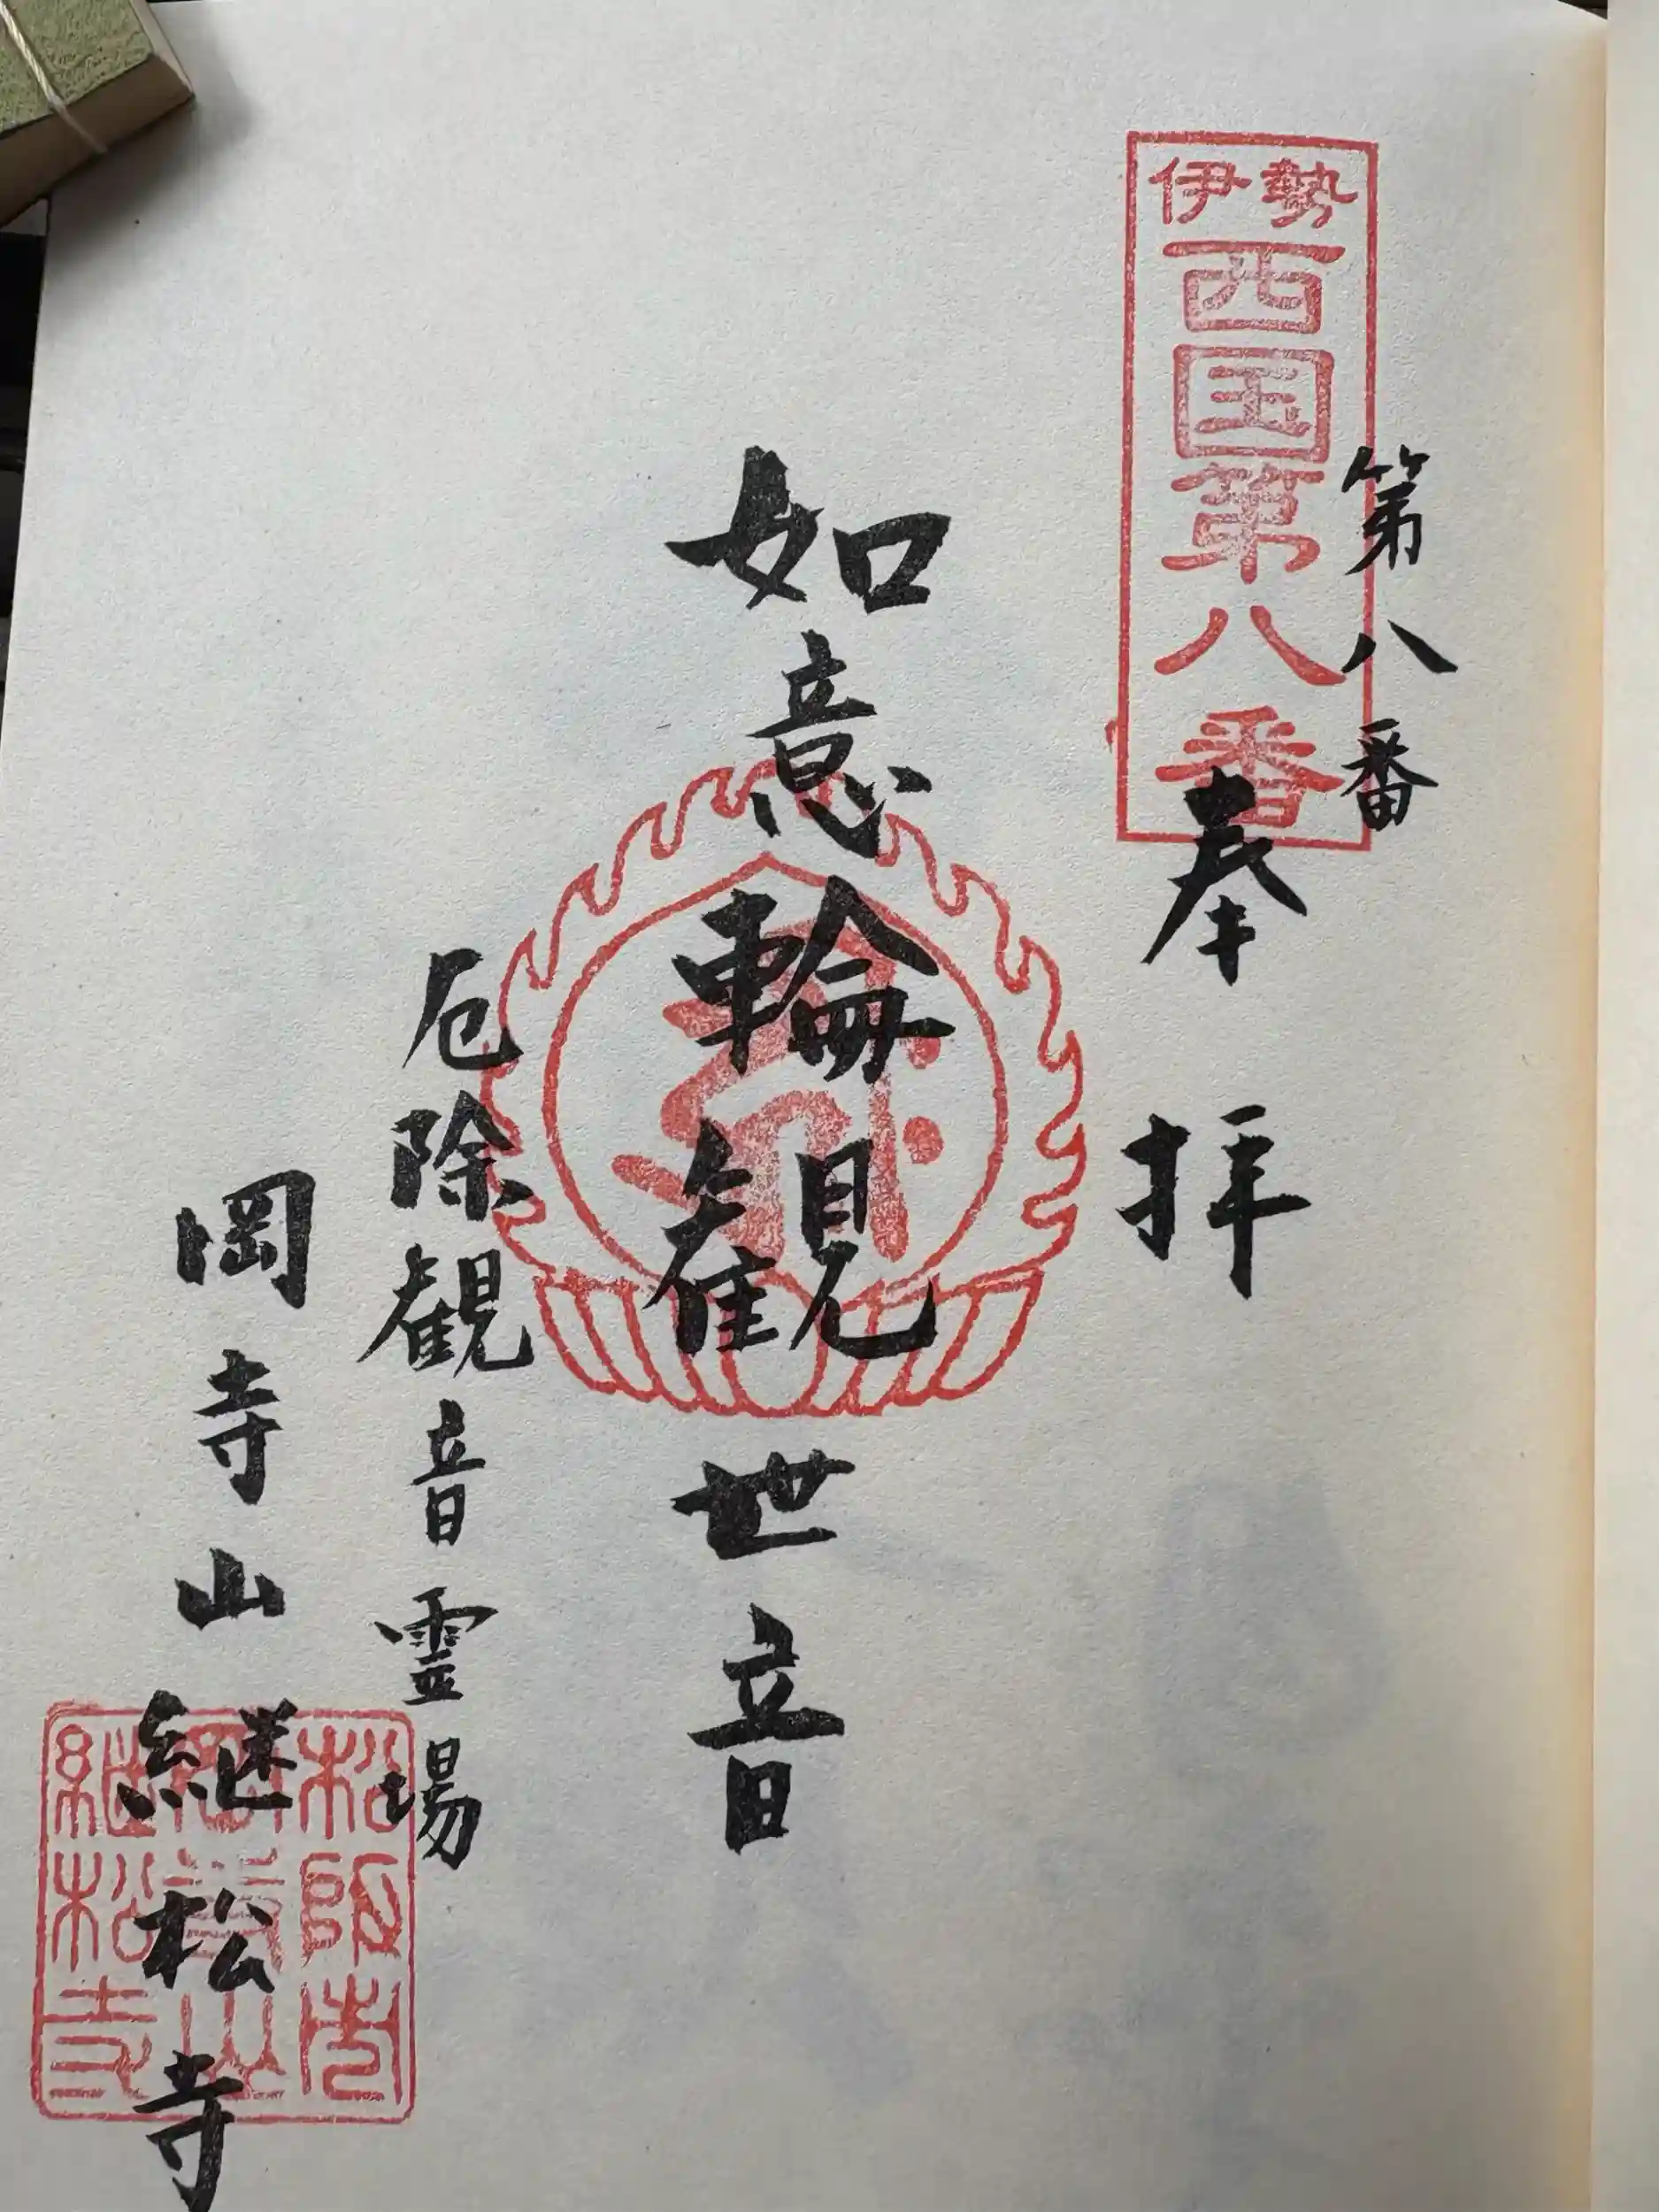 伊勢
西国第八番
第八番
奉拝
如意輪観世音
厄除観音霊場
岡寺山継松寺
松阪市
岡寺山
継松寺